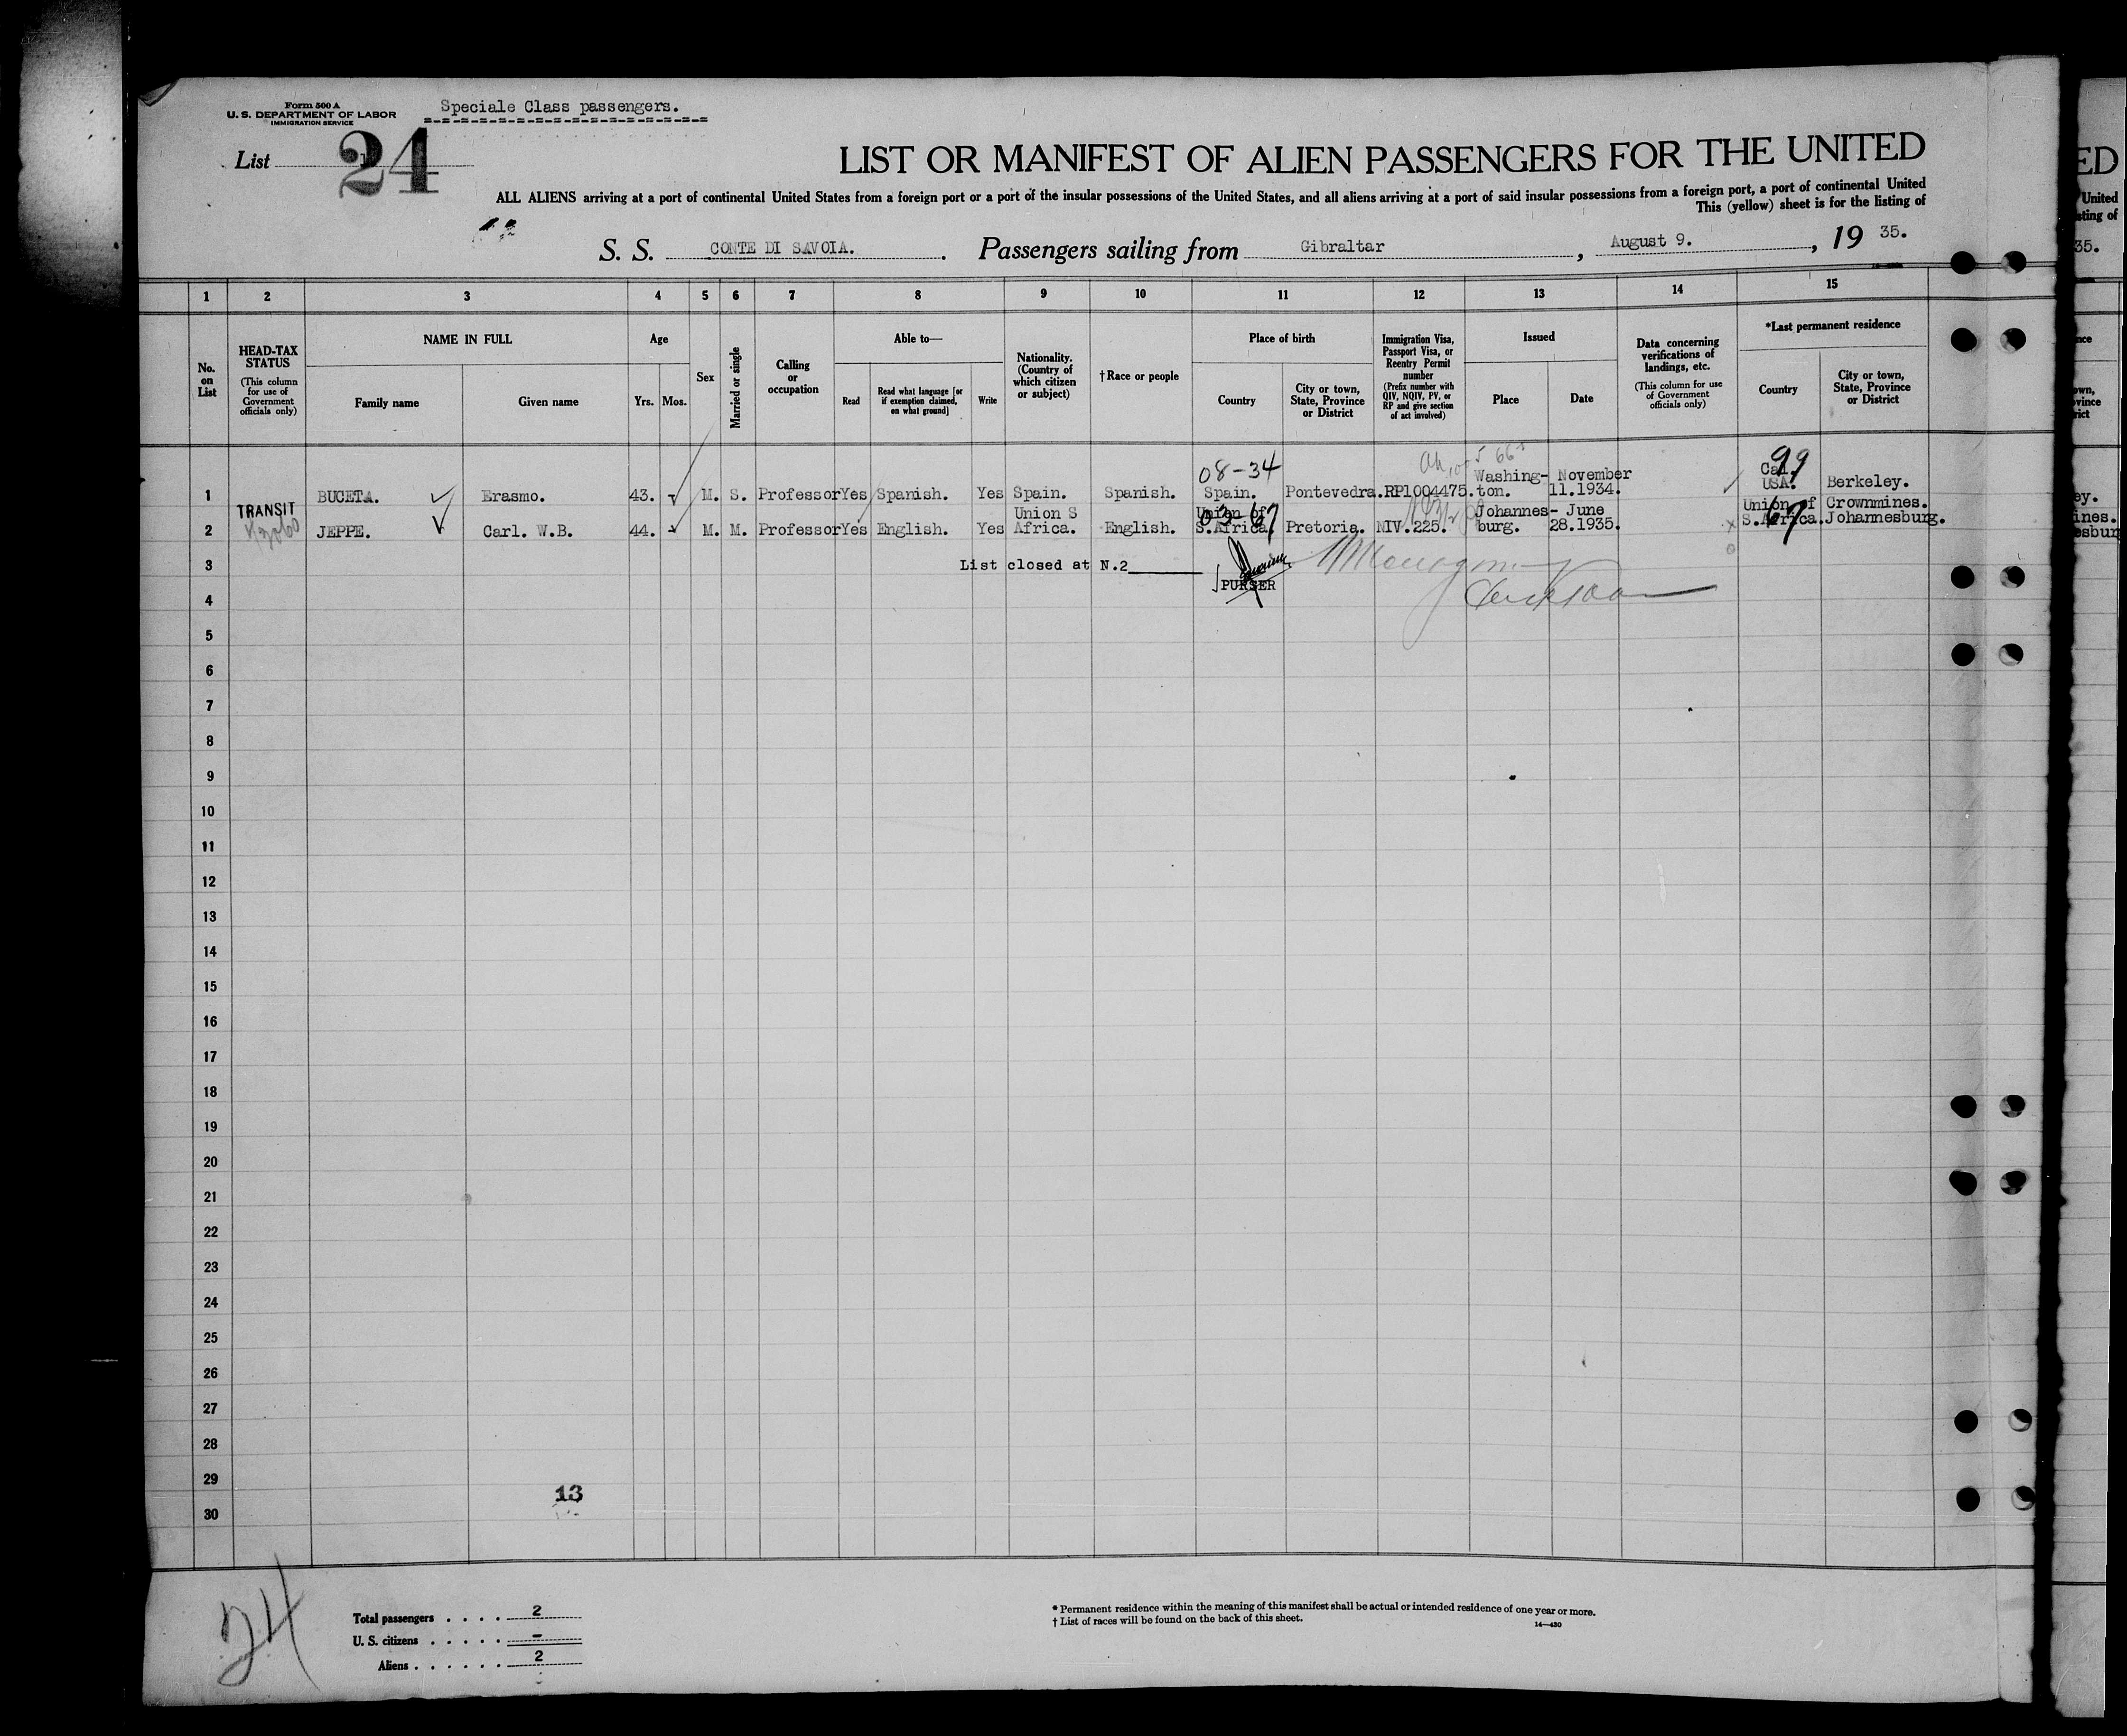 Form 500 A
U. S. DEPARTMENT OF LABOR
IMMIGRATION SERVICE
Speciale Class passengers.
List 24
LIST OR MANIFEST OF ALIEN PASSENGERS FOR THE UNITED
ALL ALIENS arriving at a port of continental United States from a foreign port or a port of the insular possessions of the United States, and all aliens arriving at a port of said insular possessions from a foreign port, a port of continental United
This (yellow) sheet is for the listing of
S. S. CONTE DI SAVOIA. Passengers sailing from Gibraltar, August 9., 19 35.
1 2 3 4 5 6 7 8 9 10 11 12 13 14 15
No. on List
HEAD-TAX STATUS
(This column for use of Government officials only)
NAME IN FULL
Family name
Given name
Age
Yrs. Mos.
Sex
Married or single
Calling or occupation
Able to—
Read
Read what language [or if exemption claimed, on what ground]
Write
Nationality. (Country of which citizen or subject)
†Race or people
Place of birth
Country
City or town, State, Province or District
Immigration Visa, Passport Visa, or Reentry Permit number
(Prefix number with QIV, NQIV, PV, or RP and give section of act involved)
Issued
Place
Date
Data concerning verifications of landings, etc.
(This column for use of Government officials only)
*Last permanent residence
Country
City or town, State, Province or District
08-34
99
1 BUCETA. Erasmo. 43. M. S. Professor Yes Spanish. Yes Spain. Spanish. Spain. Pontevedra. RP1004475. Washington. November 11.1934. Cal. USA. Berkeley.
TRANSIT
03-67
67
2 JEPPE. Carl. W.B. 44. M. M. Professor Yes English. Yes Union S Africa. English. Union of S.Africa. Pretoria. NIV.225. Johannesburg. June 28.1935. Union of S.Africa. Crownmines. Johannesburg.
3 List closed at N.2
PURSER
4
5
6
7
8
9
10
11
12
13
14
15
16
17
18
19
20
21
22
23
24
25
26
27
28
29
13
30
24
Total passengers . . . . 2
U. S. citizens . . . . . –
Aliens . . . . . . 2
* Permanent residence within the meaning of this manifest shall be actual or intended residence of one year or more.
† List of races will be found on the back of this sheet.
14—430
ED
United
sting of
35.